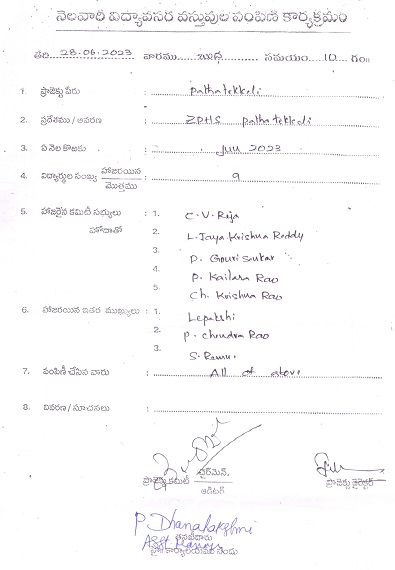 నెలవారీ విద్యావసర వస్తువుల పంపిణీ కార్యక్రమం
తేది. 28.06.2023 వారము బుధ సమయం 10 గం॥
1. ప్రాజెక్టు పేరు : Pathatekkali
2. ప్రదేశము / ఆవరణ : ZPHS Pathatekkali
3. ఏ నెల కొఱకు : 2023
4. విద్యార్థుల సంఖ్య హాజరయిన / మొత్తము : 9
5. హాజరైన కమిటీ సభ్యులు : 1. C.V. Raja
హోదాతో 2. L. Jaya Krishna Reddy
3. D. Gouri Sankar
4. P. Kailasa Rao
5. Ch. Krishna Rao
6. హాజరయిన ఇతర ముఖ్యులు : 1. Lepakshi
2. P. Chendra Rao
3. S. Ramu.
7. పంపిణీ చేసిన వారు : All of above
8. వివరణ / సూచనలు :
ప్రాజెక్టు కమిటీ చైర్‌మెన్. ప్రాజెక్టు డైరెక్టర్
ఆడిటర్
P. Dhanalakshmi